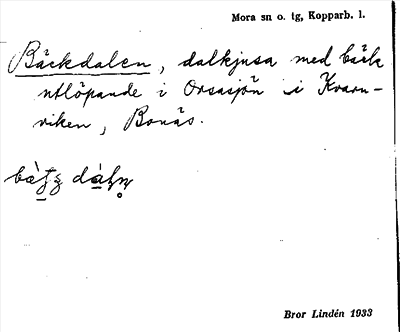 Mora sn o. tg, Kopparb. l.
Bäckdalen, dalkjusa med bäck
utlöpande i Orsasjön i Kvarn-
viken, Bonäs.
Bror Lindén 1933